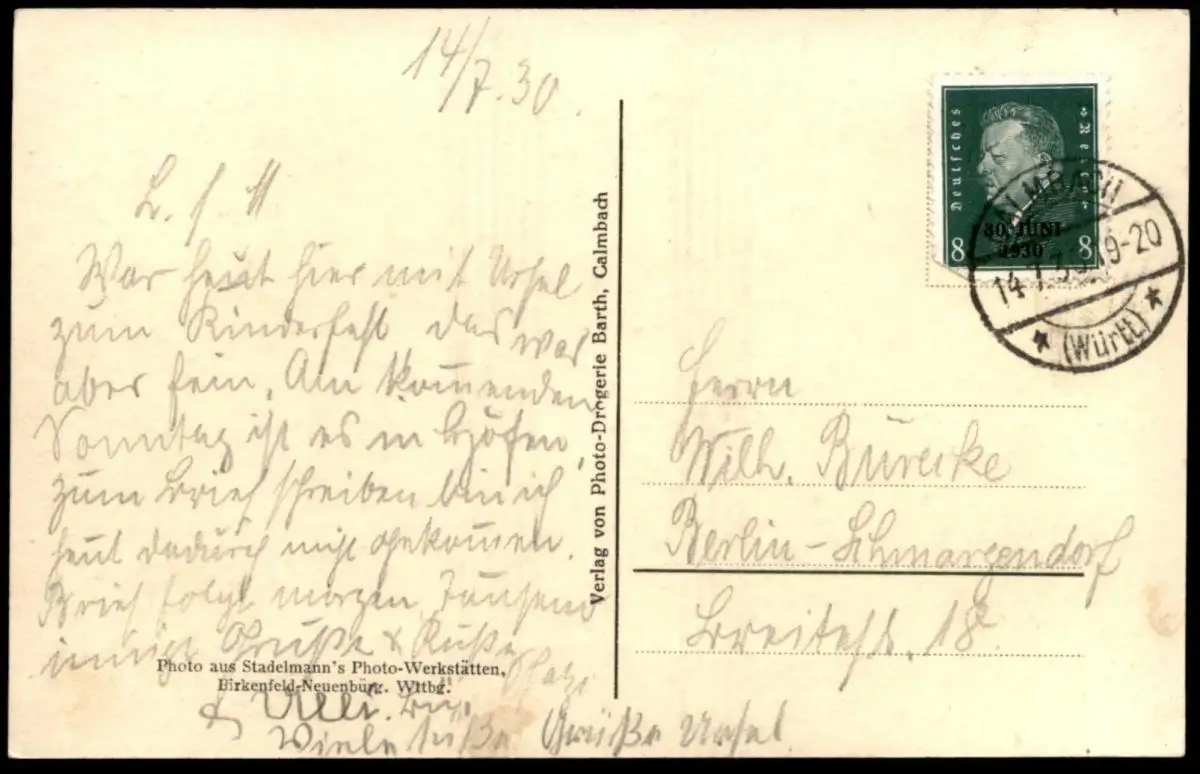 14/7.30.
L. f. M
War heut hier mit Ursel
zum Kinderfest das war
aber fein. Am kommenden
Sonntag ist es in Höfen,
zum Brief schreiben bin ich
heut dadurch nicht gekommen.
Brief folgt morgen. Tausend
innige Grüße & Küsse
Photo aus Stadelmann's Photo-Werkstätten,
Birkenfeld-Neuenbürg. Wttbg.
Viele süße Grüße Ursel.
Verlag von Photo-Drogerie Barth, Calmbach
Deutsches Reich
30. JUNI
1930
8 8
CALMBACH
14.7.30.19-20
(Württ)
Herrn
Wilh. Bürcke
Berlin-Schmargendorf
Breitestr. 18